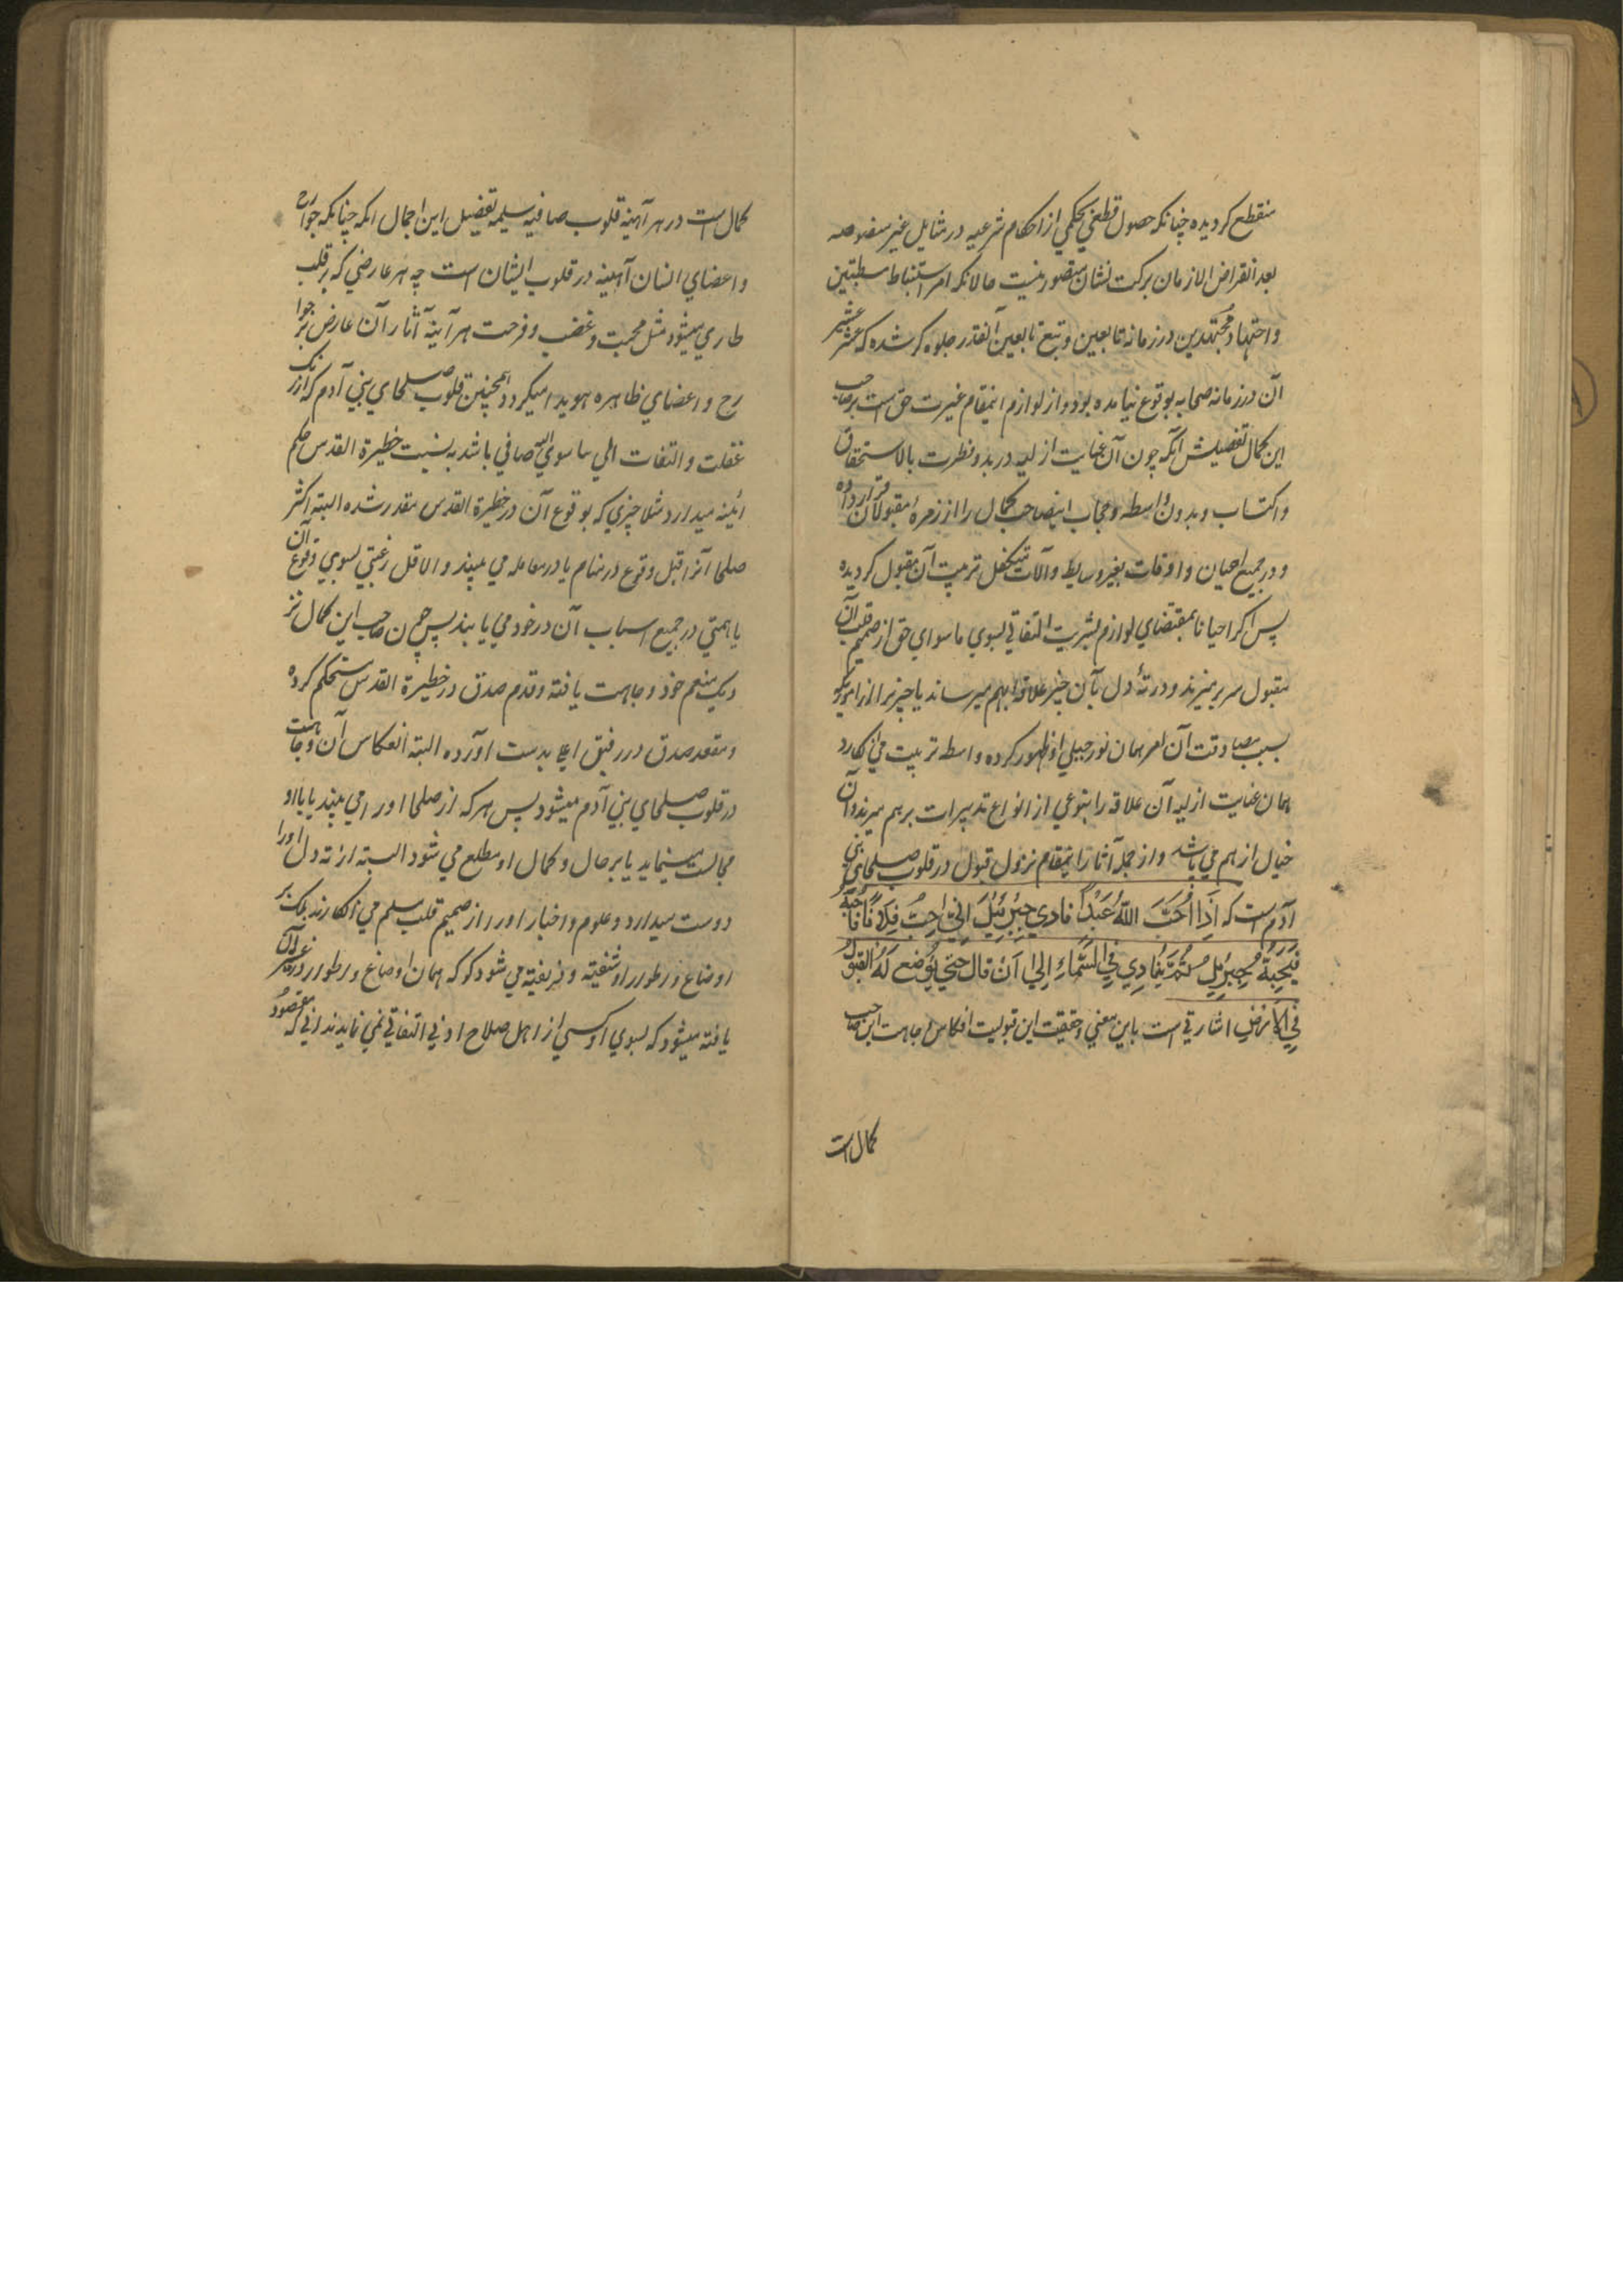 منقطع کردیده چنانکه حصول قطعی بحکمی از احکام شرعیه در مثایل غیر منصوصه
بعد انقراض الازمان برکت نشان متصور نیست حالانکه امر استنباط مستنبطین
و اجتهاد مجتهدین در زمانه تابعین و تبع تابعین آنقدر جلوه کر شده که عشر عشیر
آن در زمانه صحابه بوقوع نیامده بود و از لوازم اینمقام غیرت حق است بر صاحب
این کمال تفصیلش آنکه چون آن عنایت ازلیه در بدو فطرت بالاستحقاق
و اکتساب و بدون واسطه و حجاب اینصاحب کمال را از زمره مقبولان قرار داده
و در جمیع احیان و اوقات بغیر وسایط و آلات متکفل تربیت آن مقبول کردیده
پس اکر احیانا بمقتضای لوازم بشریت التفاتی بسوی ما سوای حق از صمیم قلب آن
مقبول سر بر میزند و در ته دل بآن چیز علاقه بهم میرساند یا چیزیرا از امور
بسبب مصادقت آن امر همان نور جبلی او ظهور کرده واسطه تربیت می انکارد
همان عنایت ازلیه آن علاقه را بنوعی از انواع تدبیرات برهم میزند و آن
خیال از هم می پاشد و از جمله آثار اینمقام نزول قبول در قلوب صلحای بنی
آدم است که اذا احب الله عبدا نادی جبرئیل انی احب فلانا فاحبه
فیحبه جبرئیل ثم ینادی فی السماء الی ان قال حتی یوضع له القبول
فی الارض اشارتی است باین معنی و حقیقت این قبولیت انعکاس وجاهت این صاحب
کمال است
کمال است در هر آئینه قلوب صافیه سلیمه تفصیل این اجمال انکه چنانکه جوارح
و اعضای انسان آئینه در قلوب ایشان است چه هر عارضی که بر قلب
طاری میشود مثل محبت و غضب و فرحت هر آینه آثار آن عارض بر جوا
رح و اعضای ظاهره هویدا میکردد همچنین قلوب صلحای بنی آدم که از زنک
غفلت و التفات الی ما سوی الله صافی باشد به نسبت حظیرة القدس حکم
ائینه میدارد مثلا چیزی که بوقوع آن در حظیرة القدس مقدر شده البته اکثر
صلحا آنرا قبل وقوع در منام یا در معامله می بینند و الا قل رغبتی بسوی وقوع آن
یا همتی در جمیع اسباب آن در خود می یابند پس چون صاحب این کمال نز
دیک منعم خود وجاهت یافته و قدم صدق در حظیرة القدس مستحکم کرده
و مقعد صدق در رفیق اعلی بدست اورده البته انعکاس آن وجاهت
در قلوب صلحای بنی آدم میشود پس هر که از صلحا او را می بیند یا با او
مجالست مینماید یا بر حال و کمال او مطلع می شود البته از ته دل او را
دوست میدارد و علوم و اخبار او را از صمیم قلب مسلم می انکارند بلکه بر
اوضاع و اطوار او شیفته و فریفته می شود کو که همان اوضاع و اطوار در غیر آن
یافته میشود که بسوی او کسی از اهل صلاح ادنی التفاتی نمی نماید ندانی که مقصود